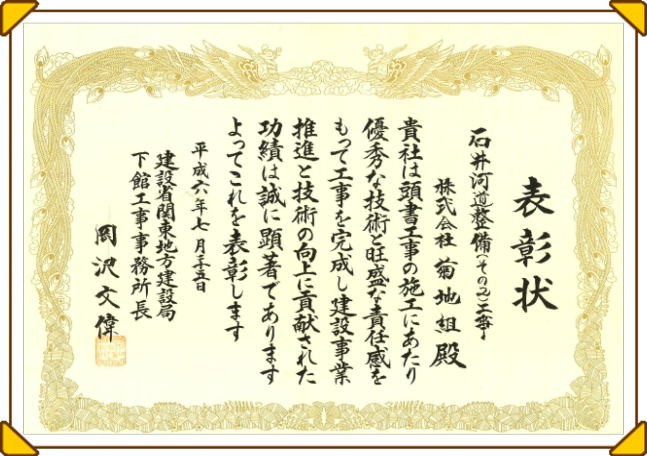 表彰状
石井河道整備(その2)工事
株式会社 菊地組 殿
貴社は頭書工事の施工にあたり
優秀な技術と旺盛な責任感を
もって工事を完成し建設事業
推進と技術の向上に貢献された
功績は誠に顕著であります
よってこれを表彰します
平成六年七月二十五日
建設省関東地方建設局
下館工事事務所長
岡沢文偉